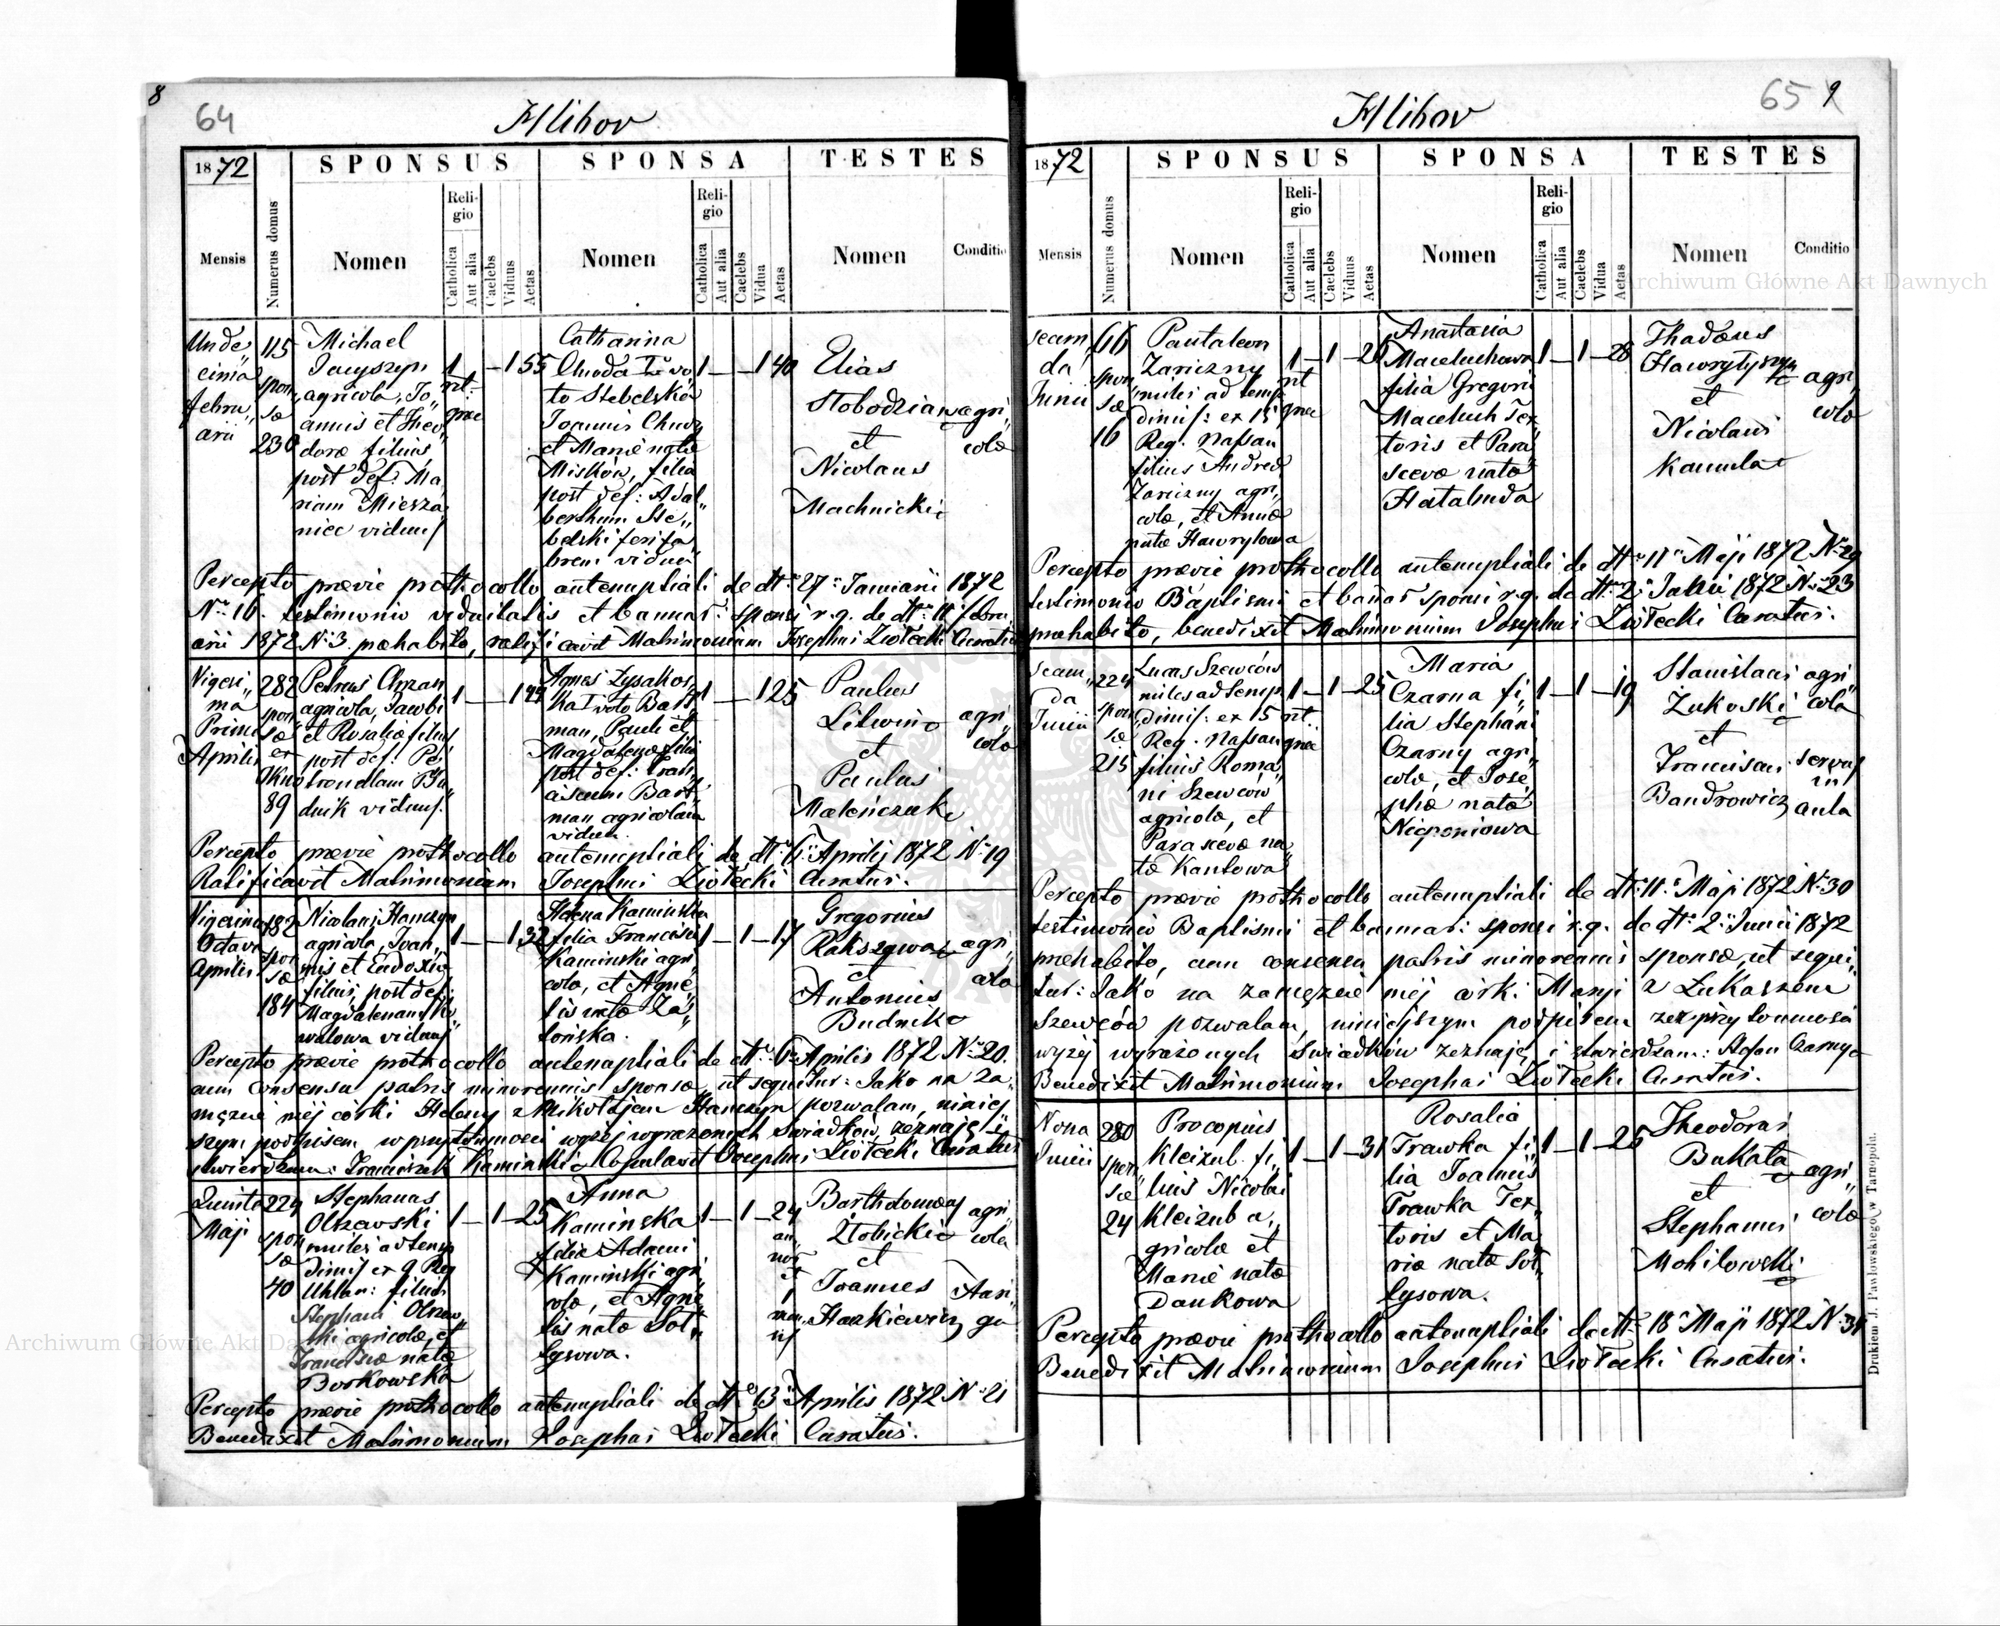 8
64
Hlibov
1872
SPONSUS
SPONSA
TESTES
Mensis
Numerus domus
Nomen
Religio
Catholica
Aut alia
Caelebs
Viduus
Aetas
Nomen
Religio
Catholica
Aut alia
Caelebs
Vidua
Aetas
Nomen
Conditio
Unde„
cima
febru„
arii
115
spon
sæ
230
Michael
Jacyszyn
agricola, Jo„
annis et Theo„
doræ filius
post def: Ma
riam Miesza
niec viduus
1 – – 1 55
rit.
græc
Catharina
Chuda 1mo vo„
to Stebelska
Joannis Chudy
et Mariæ natæ
Misków, filia
post def: Adal„
bertum Ste„
belski
vidua
1 – – 1 40
Elias
Slobodzian
et
Nicolaus
Machnicki
agri„
colæ
Percepto prævie prothocollo antenuptiali de dtto 27 Januarii 1872
No 16. testimonio viduitatis et bannar: sponsi r.g. de dtto 11 febru„
arii 1872 No 3. præhabito, ratificavit Matrimonium Josephus Ziołecki Curatus
Vigesi„
ma
Prima
Aprilis
282
spon
sæ
er
89
Petrus Chrzan
agricola, Jacobi
et Rosaliæ filius
post def: Pe„
tronellam Bu
dnik viduus
1 – – 1 44
Agnes Łysakows„
ka 1voto Bart
man, Pauli et
Magdalenæ filia
post def: Fran
ciscum Bart„
man agricolam
vidua.
1 – – 1 25
Paulus
Litwin
et
Paulus
Maleńczuk
agri„
colæ
Percepto prævie prothocollo antenuptiali de dtto 6 Aprilis 1872 No 19
Ratificavit Matrimonium Josephus Ziołecki Curatus.
Vigesima
Octava
Aprilis
182
spon
sæ
184
Nicolaus Hanczyn
agricola, Joan„
nis et Eudoxiæ
filius, post def:
Magdalenam
viduus
1 – – 1 32
Helena Kamińska
filia Francisci
Kaminski agri
colæ, et Agne„
tis natæ Za„
tońska.
1 – 1 – 17
Gregorius
Rakszywa
et
Antonius
Budnik
agri„
colæ
Percepto prævie prothocollo antenuptiali de dtto 6 Aprilis 1872 No 20.
cum consensu patris minorennis sponsæ, ut sequitur: Jako na za„
męzcie méj córki Heleny z Mikołajem Hanczyn pozwalam, niniej„
szym podpisem w przytomności wyżej wyrażonych świadków, zeznaję i
stwierdzam: Franciszek Kaminski Copulavit Josephus Ziołecki Curatus
Quinta
Maji
224
spon
sæ
40
Stephanus
Olszewski
miles ad temp
dimis: ex 9 Reg
Uhlan: filius
Stephani Olszew„
ski agricolæ, et
Franciscæ natæ
Borkowska
1 – 1 – 25
Anna
Kaminska
filia Adami
Kaminski agri
colæ, et Agne„
tis natæ Soł„
tysowa.
1 – 1 – 24
an„
nor
et
1
men„
sis
Bartholomæus
Złobicki
et
Joannes
Haskiewicz
agri
cola
Auri„
ga
Percepto prævie prothocollo antenuptiali de dtto 13 Aprilis 1872 No 21
Benedixit Matrimonium Josephus Ziołecki Curatus.
65 9
Hlibov
1872
SPONSUS
SPONSA
TESTES
Mensis
Numerus domus
Nomen
Religio
Catholica
Aut alia
Caelebs
Viduus
Aetas
Nomen
Religio
Catholica
Aut alia
Caelebs
Vidua
Aetas
Nomen
Conditio
Secun
da
Junii
66
spon
sæ
16
Pantaleon
Zariczny
miles ad temp
dimis: ex 15
Reg. Nassau
filius Andreæ
Zariczny agri„
colæ, et Annæ
natæ Hawrylowa
1 – 1 – 26
rit
græc
Anastasia
Maceluchowa
filia Gregorii
Maceluch Tex„
toris et Para„
scevæ natæ
Hałabuda
1 – 1 – 28
Thadæus
Hawryłyszyn
et
Nicolaus
Kamula
agri„
colæ
Percepto prævie prothocollo antenuptiali de dtto 11 Maji 1872 No 29
testimonio Baptismi et bannar: sponsi r.g. de dtto 2 Junii 1872 No 23
præhabito, benedixit Matrimonium Josephus Ziołecki Curatus.
Secun„
da
Junii
224
spon„
sæ
215
Lucas Szewców
miles ad temp
dimis: ex 15
Reg. Nassau
filius Roma„
ni Szewców
agricolæ, et
Parascevæ na„
tæ Kantowa
1 – 1 – 25
rit.
græc
Maria
Czarna fi„
lia Stephani
Czarny agri„
colæ, et Jose„
phæ natæ
Nieponiowa
1 – 1 – 19
Stanislaus
Żukoski
et
Franciscus
Bandrowicz
agri„
cola
servus
in
aula
Percepto prævie prothocollo antenuptiali de dtto 11 Maji 1872 No 30
testimonio Baptismi et bannar: sponsi r.g. de dtto 2 Junii 1872
præhabito, cum consensu patris minorennis sponsæ, ut sequi„
tur: Jako na zamęzcie méj córki Maryi z Łukaszem
Szewców pozwalam, niniejszym podpisem zez przytomności
wyżej wyrażonych świadków zeznaję, i stwierdzam: Stefan Czarny
Benedixit Matrimonium Josephus Ziołecki Curatus.
Nona
Junii
280
spon
sæ
24
Procopius
Kleizub fi„
lius Nicolai
Kleizub a„
gricolæ et
Mariæ natæ
Dankowa
1 – 1 – 31
Rosalia
Trawka fi„
lia Joannis
Trawka Tex„
toris et Ma„
riæ natæ Soł„
tysowa.
1 – 1 – 25
Theodorus
Bukata
et
Stephanus
Mohilowski
agri„
colæ
Percepto prævie prothocollo antenuptiali de dtto 18 Maji 1872 No 31
Benedixit Matrimonium Josephus Ziołecki Curatus.
Drukiem J. Pawłowskiego w Tarnopolu.
Archiwum Główne Akt Dawnych
Archiwum Główne Akt Dawnych